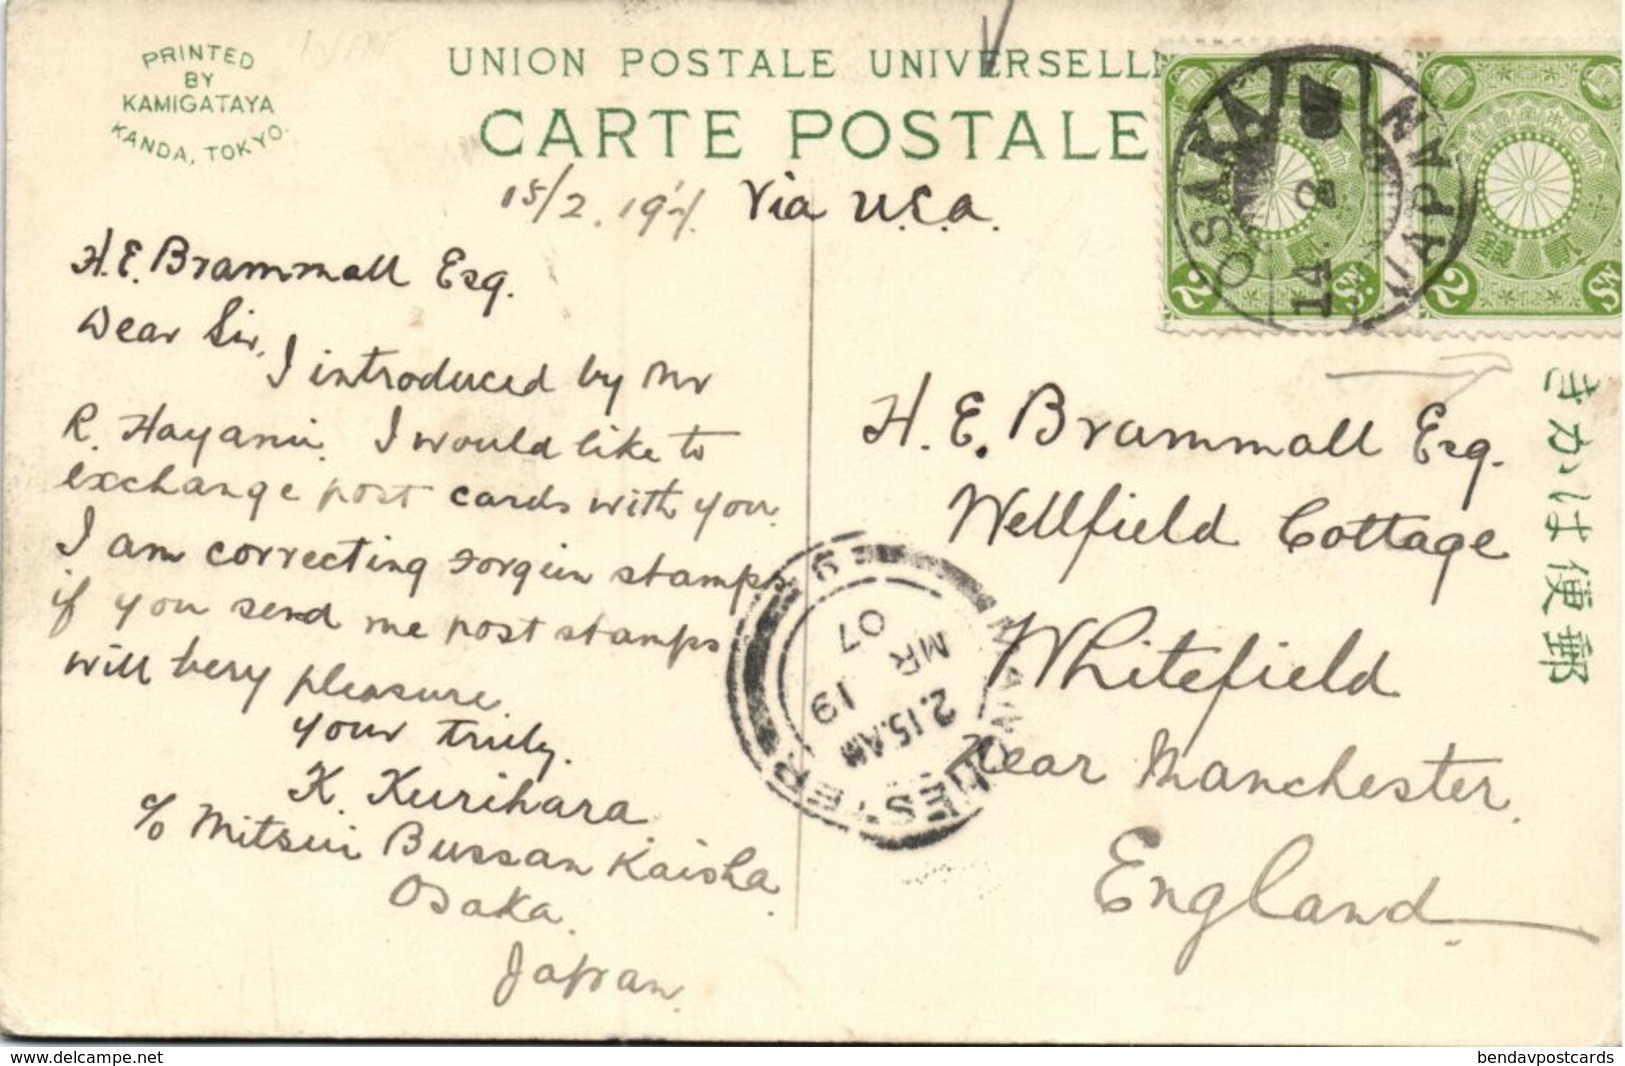 PRINTED
BY
KAMIGATAYA
KANDA, TOKYO.
UNION POSTALE UNIVERSELL
CARTE POSTALE
15/2. 1907. Via U.S.A.
OSAKA
14. 2 07
JAPAN
2 Sn.
2 Sn
きかは便郵
H. E. Brammall Esq.
Dear Sir,
I introduced by Mr
R. Hayami. I would like to
exchange post cards with you.
I am correcting forgien stamps
if you send me post stamps
will bery pleasure.
your truly.
K. Kurihara
c/o Mitsui Bussan Kaisha
Osaka.
Japan.
H. E. Brammall Esq.
Wellfield Cottage
Whitefield
Near Manchester.
England.
MANCHESTER
2.15.AM
MR 19
07
www.delcampe.net
bendavpostcards